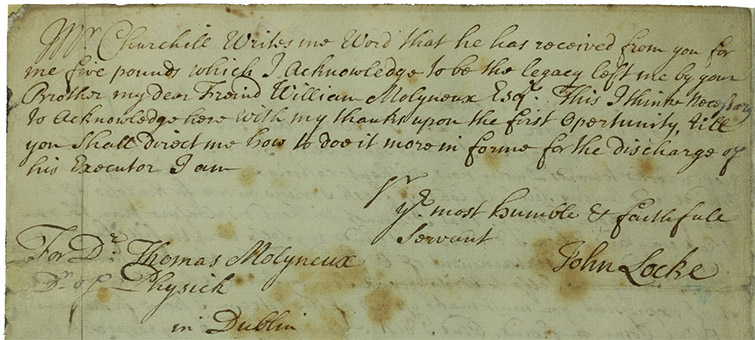 Mr. Churchill Writes me Word that he has received from you for
me five pounds which I Acknowledge to be the legacy left me by your
Brother my dear Freind William Molyneux Esqr. This I thinke necessary
to Acknowledge here with my thanks upon the first Opertunity, till
you Shall direct me how to doe it more in forme for the discharge of
his Executor I am
Sr
yr. most humble & faithfull
Servant
John Locke
For Dr. Thomas Molyneux
Dr. of Physick
in Dublin